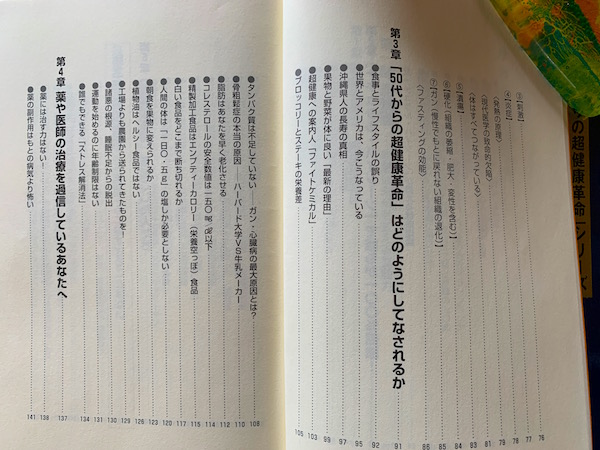 ③〔刺激〕 76
④〔炎症〕 77
〈発熱の原理〉 78
〈現代医学の致命的欠陥〉 79
〈体はすべてつながっている〉 81
⑤〔潰瘍〕 83
⑥〔硬化（組織の萎縮・肥大・変性を含む）〕 84
⑦〔ガン（慢性でもとに戻れない組織の退化）〕 85
〈ファスティングの効能〉 86
第3章 「50代からの超健康革命」はどのようにしてなされるか 91
●食事とライフスタイルの誤り 92
●世界とアメリカは、今こうなっている 92
●沖縄県人の長寿の真相 95
●果物と野菜が体に良い「最新の理由」 97
●超健康への案内人「ファイトケミカル」 99
●ブロッコリーとステーキの栄養差 103
105
●タンパク質は不足していない ガン・心臓病の最大原因とは？ 108
●骨粗鬆症の本当の原因 ハーバード大学VS牛乳メーカー 110
●脂肪はあなたを早く老化させる 112
●コレステロールの安全数値は一五〇mg/dℓ以下 114
●精製加工食品はエンプティーカロリー（栄養空っぽ）食品 115
●白い食品をどこまで断ち切れるか 117
●人間の体は「一日〇・五g」の塩しか必要としない 120
●朝食を果物に変えられるか 123
●植物油はヘルシー食品ではない 126
●工場よりも農園から送られてきたものを！ 129
●諸悪の根源、睡眠不足からの脱出 130
●運動を始めるのに年齢制限はない 131
●誰でもできる「ストレス解消法」 134
第4章 薬や医師の治療を過信しているあなたへ 137
●薬には治す力はない！ 138
●薬の副作用はもとの病気より怖い 141
の超健康革命」シリーズ